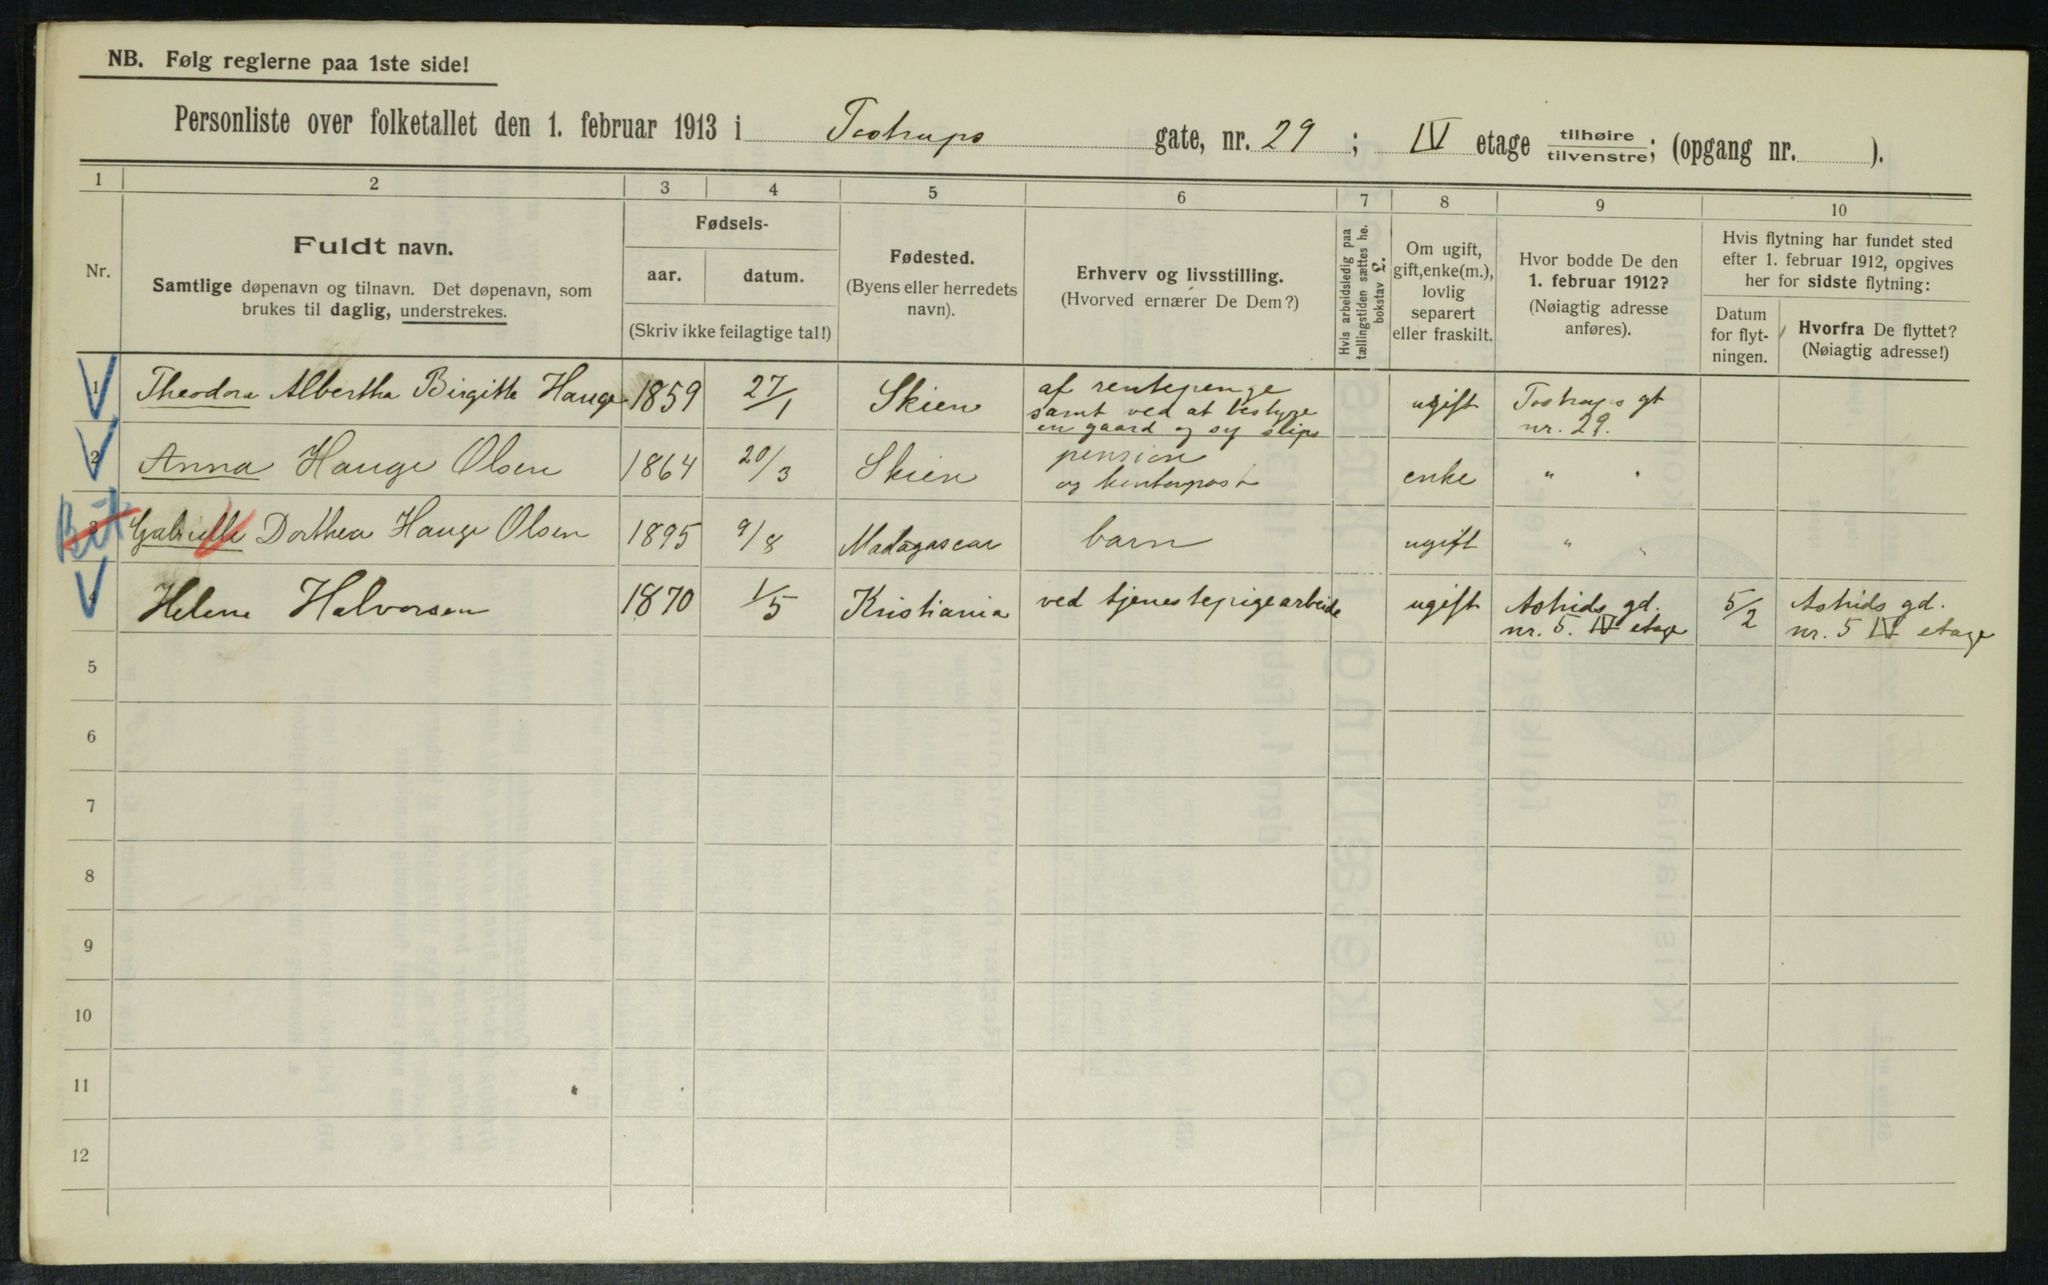 NB. Følg reglerne paa 1ste side!
Personliste over folketallet den 1. februar 1913 i Tostrups gate, nr. 29 ; IV etage tilhøire tilvenstre; (opgang nr. ).
1 2 3 4 5 6 7 8 9 10
Nr.
Fuldt navn.
Samtlige døpenavn og tilnavn. Det døpenavn, som
brukes til daglig, understrekes.
Fødsels-
aar. datum.
(Skriv ikke feilagtige tal!)
Fødested.
(Byens eller herredets
navn).
Erhverv og livsstilling.
(Hvorved ernærer De Dem?)
Hvis arbeidsledig paa
tællingstiden sættes he.
bokstav L.
Om ugift,
gift, enke(m.),
lovlig
separert
eller fraskilt.
Hvor bodde De den
1. februar 1912?
(Nøiagtig adresse
anføres).
Hvis flytning har fundet sted
efter 1. februar 1912, opgives
her for sidste flytning:
Datum
for flyt-
ningen.
Hvorfra De flyttet?
(Nøiagtig adresse!)
1 Theodora Albertha Birgitte Hauge 1859 27/1 Skien af rentepenge
samt ved at bestyre
en gaard og sy slips ugift Tostrups gt
nr. 29.
2 Anna Hauge Olsen 1864 20/3 Skien pension
og kontorpost enke " "
3 Gabrielle Dorthea Hauge Olsen 1895 9/8 Madagascar barn ugift " "
4 Helene Halvorsen 1870 1/5 Kristiania ved tjenestepigearbeide ugift Astrids gd.
nr. 5. IV etage 5/2 Astrids gd.
nr. 5 IV etage
5
6
7
8
9
10
11
12